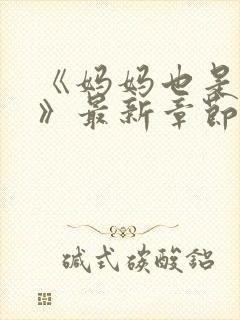 《妈妈也是
》最新章节
碱式碳酸铝